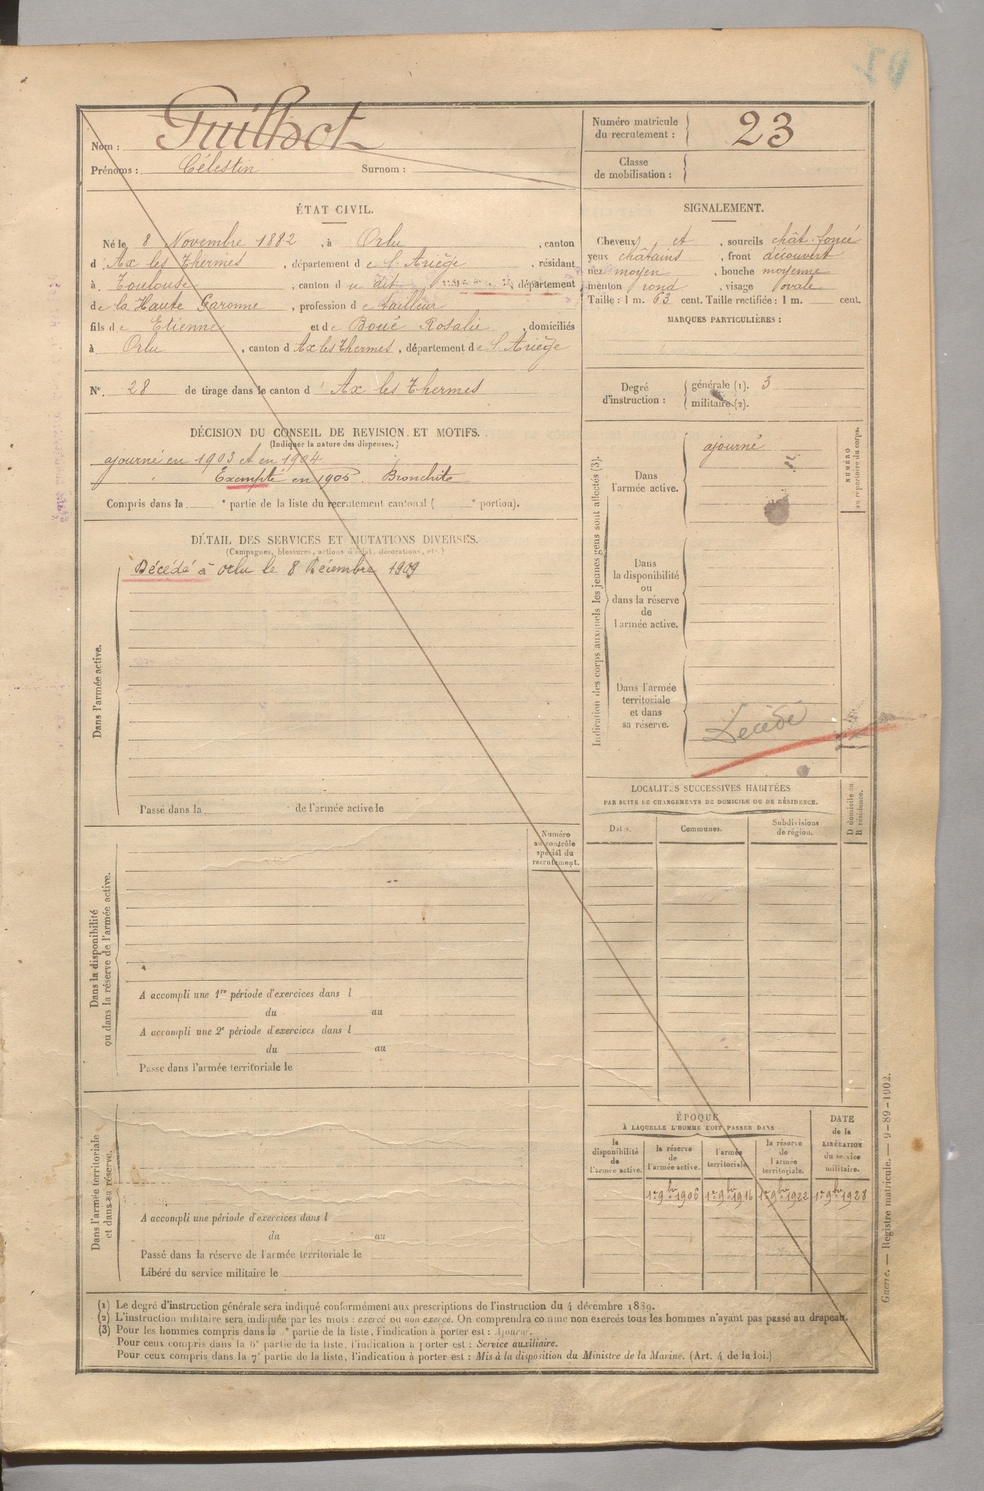 Nom : Guilhot
Prénoms : Célestin Surnom :
Numéro matricule du recrutement : 23
Classe de mobilisation :
ÉTAT CIVIL.
Né le 8 Novembre 1882, à Orlu, canton
d' Ax les Thermes, département de l'Ariège, résidant
à Toulouse, canton du dit, département
de la Haute Garonne, profession de tailleur
fils de Etienne et de Boué Rosalie, domiciliés
à Orlu, canton d'Ax les Thermes, département de l'Ariège
N° 28 de tirage dans le canton d' Ax les Thermes
SIGNALEMENT.
Cheveux et, sourcils chât. foncé
yeux châtains, front découvert
nez moyen, bouche moyenne
menton rond, visage ovale
Taille : 1 m. 63 cent. Taille rectifiée : 1 m. cent.
MARQUES PARTICULIÈRES :
Degré d'instruction : générale (1). 3
militaire (2).
DÉCISION DU CONSEIL DE REVISION ET MOTIFS.
(Indiquer la nature des dispenses.)
ajourné en 1903 et en 1904
Exempté en 1905 Bronchite
Compris dans la e partie de la liste du recrutement cantonal ( e portion).
DÉTAIL DES SERVICES ET MUTATIONS DIVERSES.
(Campagnes, blessures, actions d'éclat, décorations, etc.)
Décédé à Orlu le 8 Décembre 1909
Dans l'armée active.
Passé dans la de l'armée active le
Indication des corps auxquels les jeunes gens sont affectés (3).
NUMÉRO au répertoire du corps.
Dans l'armée active. ajourné
Dans la disponibilité ou dans la réserve de l'armée active.
Dans l'armée territoriale et dans sa réserve. Décédé
LOCALITÉS SUCCESSIVES HABITÉES
PAR SUITE DE CHANGEMENTS DE DOMICILE OU DE RÉSIDENCE.
Dates. Communes. Subdivisions de région. D domicile ou R résidence.
Numéro au contrôle spécial du recrutement.
Dans la disponibilité ou dans la réserve de l'armée active.
A accompli une 1re période d'exercices dans l
du au
A accompli une 2e période d'exercices dans l
du au
Passé dans l'armée territoriale le
Dans l'armée territoriale et dans sa réserve.
A accompli une période d'exercices dans l
du au
Passé dans la réserve de l'armée territoriale le
Libéré du service militaire le
ÉPOQUE
À LAQUELLE L'HOMME DOIT PASSER DANS
la disponibilité de l'armée active. la réserve de l'armée active. l'armée territoriale. la réserve de l'armée territoriale. DATE de la LIBÉRATION du service militaire.
1er 9bre 1906 1er 9bre 1916 1er 9bre 1922 1er 9bre 1928
(1) Le degré d'instruction générale sera indiqué conformément aux prescriptions de l'instruction du 4 décembre 1889.
(2) L'instruction militaire sera indiquée par les mots : exercé ou non exercé. On comprendra comme non exercés tous les hommes n'ayant pas passé au drapeau.
(3) Pour les hommes compris dans la e partie de la liste, l'indication à porter est : Ajourné.
Pour ceux compris dans la 6e partie de la liste, l'indication à porter est : Service auxiliaire.
Pour ceux compris dans la 7e partie de la liste, l'indication à porter est : Mis à la disposition du Ministre de la Marine. (Art. 4 de la loi.)
Guerre. — Registre matricule. — 9-89-1902.